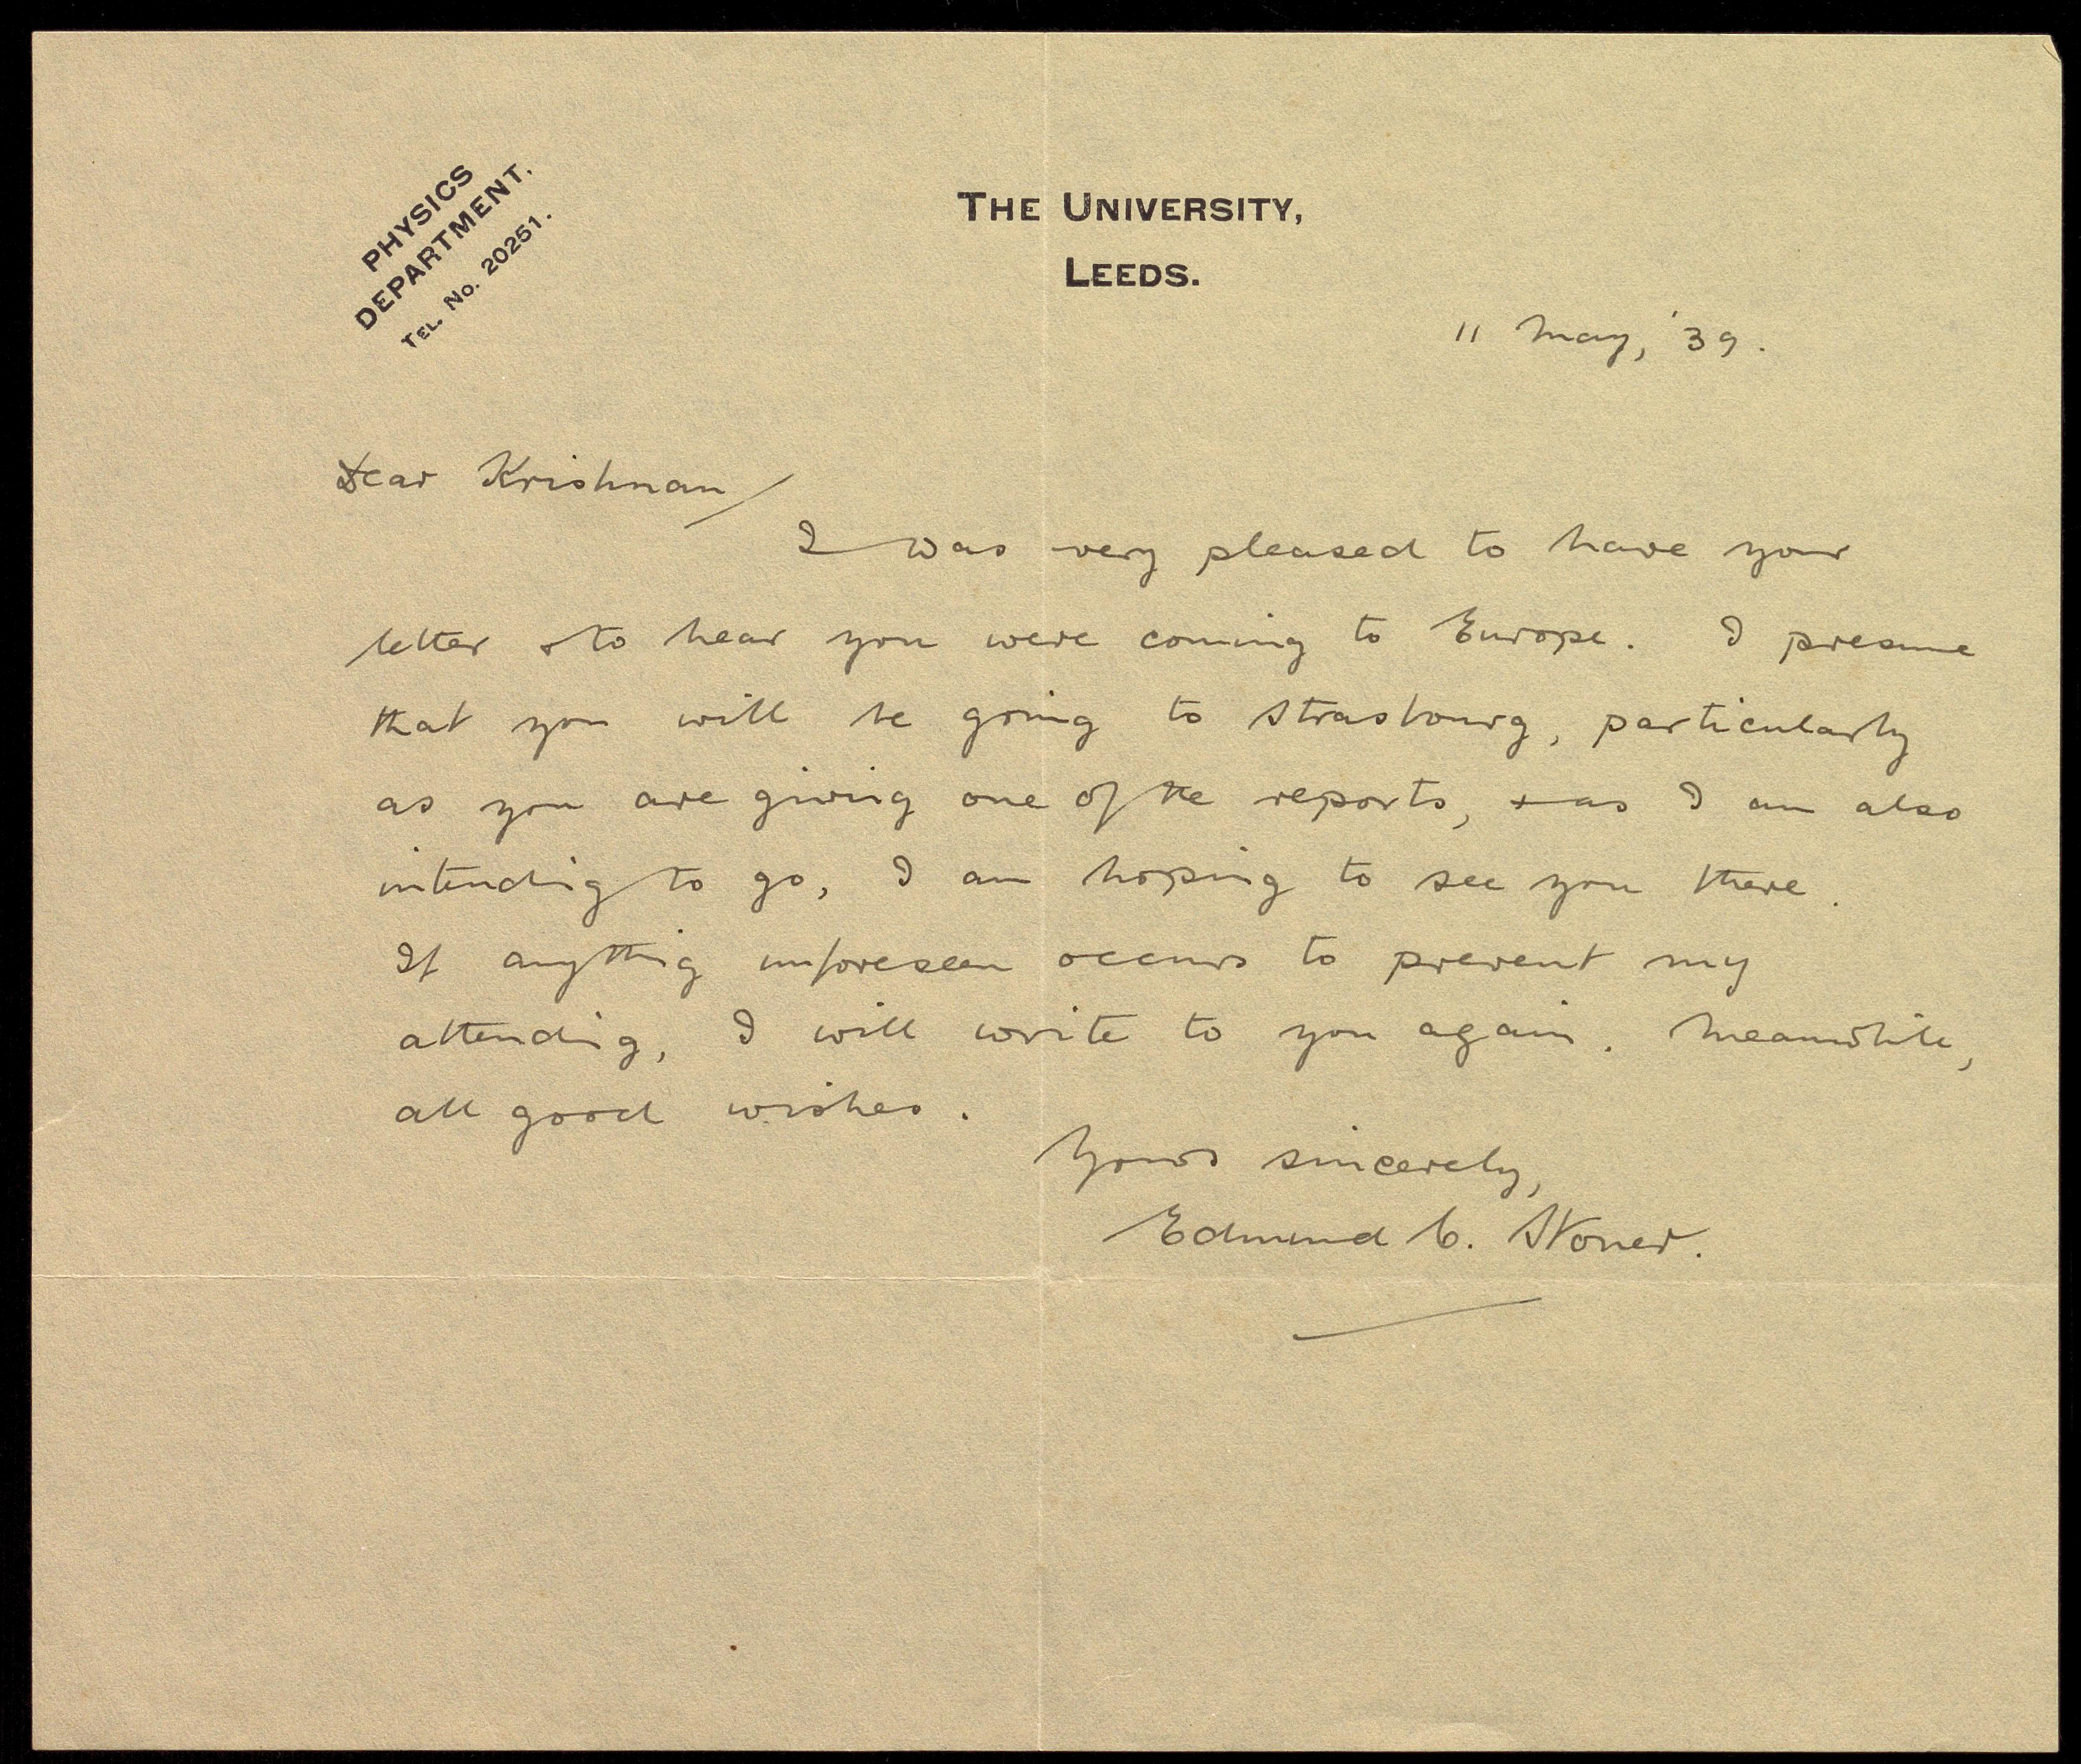 PHYSICS
DEPARTMENT.
TEL. No. 20251.
THE UNIVERSITY,
LEEDS.
11 May, '39.
Dear Krishnan/
I was very pleased to have your
letter & to hear you were coming to Europe. I presume
that you will be going to Strasbourg, particularly
as you are giving one of the reports, & as I am also
intending to go, I am hoping to see you there.
If anything unforeseen occurs to prevent my
attending, I will write to you again. Meanwhile,
all good wishes.
Yours sincerely,
Edmund C. Stoner.